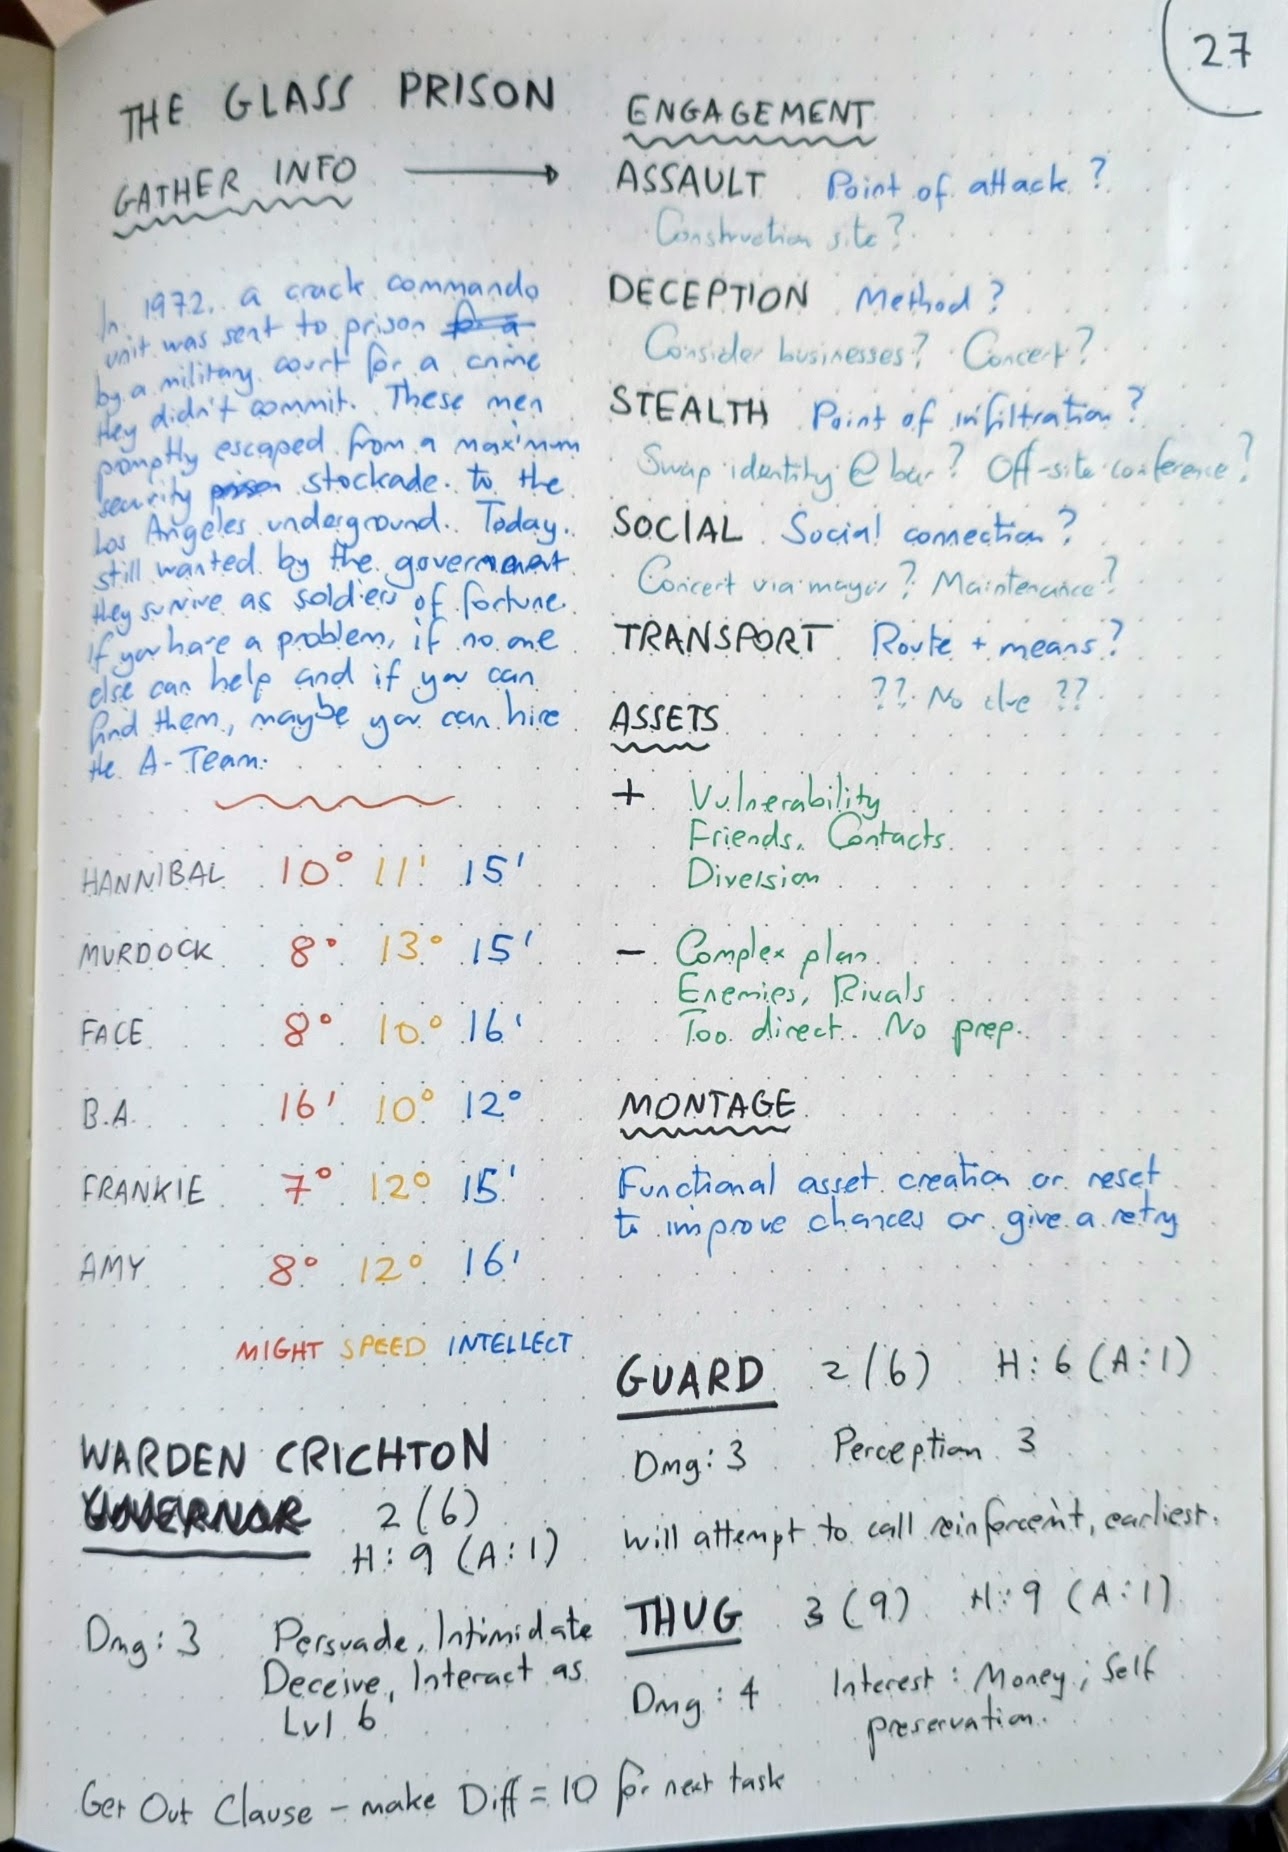 27
THE GLASS PRISON
GATHER INFO →
In 1972, a crack commando
unit was sent to prison
by a military court for a crime
they didn't commit. These men
promptly escaped from a maximum
security stockade to the
Los Angeles underground. Today,
still wanted by the government
they survive as soldiers of fortune.
If you have a problem, if no one
else can help and if you can
find them, maybe you can hire
the A-Team.
HANNIBAL 10° 11' 15'
MURDOCK 8° 13° 15'
FACE 8° 10° 16'
B.A. 16' 10° 12°
FRANKIE 7° 12° 15'
AMY 8° 12° 16'
MIGHT SPEED INTELLECT
WARDEN CRICHTON
GOVERNOR 2 (6)
H: 9 (A:1)
Dmg: 3 Persuade, Intimidate
Deceive, Interact as
Lvl 6
ENGAGEMENT
ASSAULT Point of attack?
Construction site?
DECEPTION Method?
Consider businesses? Concert?
STEALTH Point of infiltration?
Swap identity @ bar? Off-site conference?
SOCIAL Social connection?
Concert via mayor? Maintenance?
TRANSPORT Route + means?
?? No clue ??
ASSETS
+ Vulnerability
Friends, Contacts
Diversion
- Complex plan
Enemies, Rivals
Too direct. No prep.
MONTAGE
Functional asset creation or reset
to improve chances or give a retry
GUARD 2 (6) H: 6 (A:1)
Dmg: 3 Perception 3
will attempt to call reinforcem't, earliest.
THUG 3 (9) H: 9 (A:1)
Dmg: 4 Interest: Money; Self
preservation.
Get Out Clause - make Diff = 10 for next task